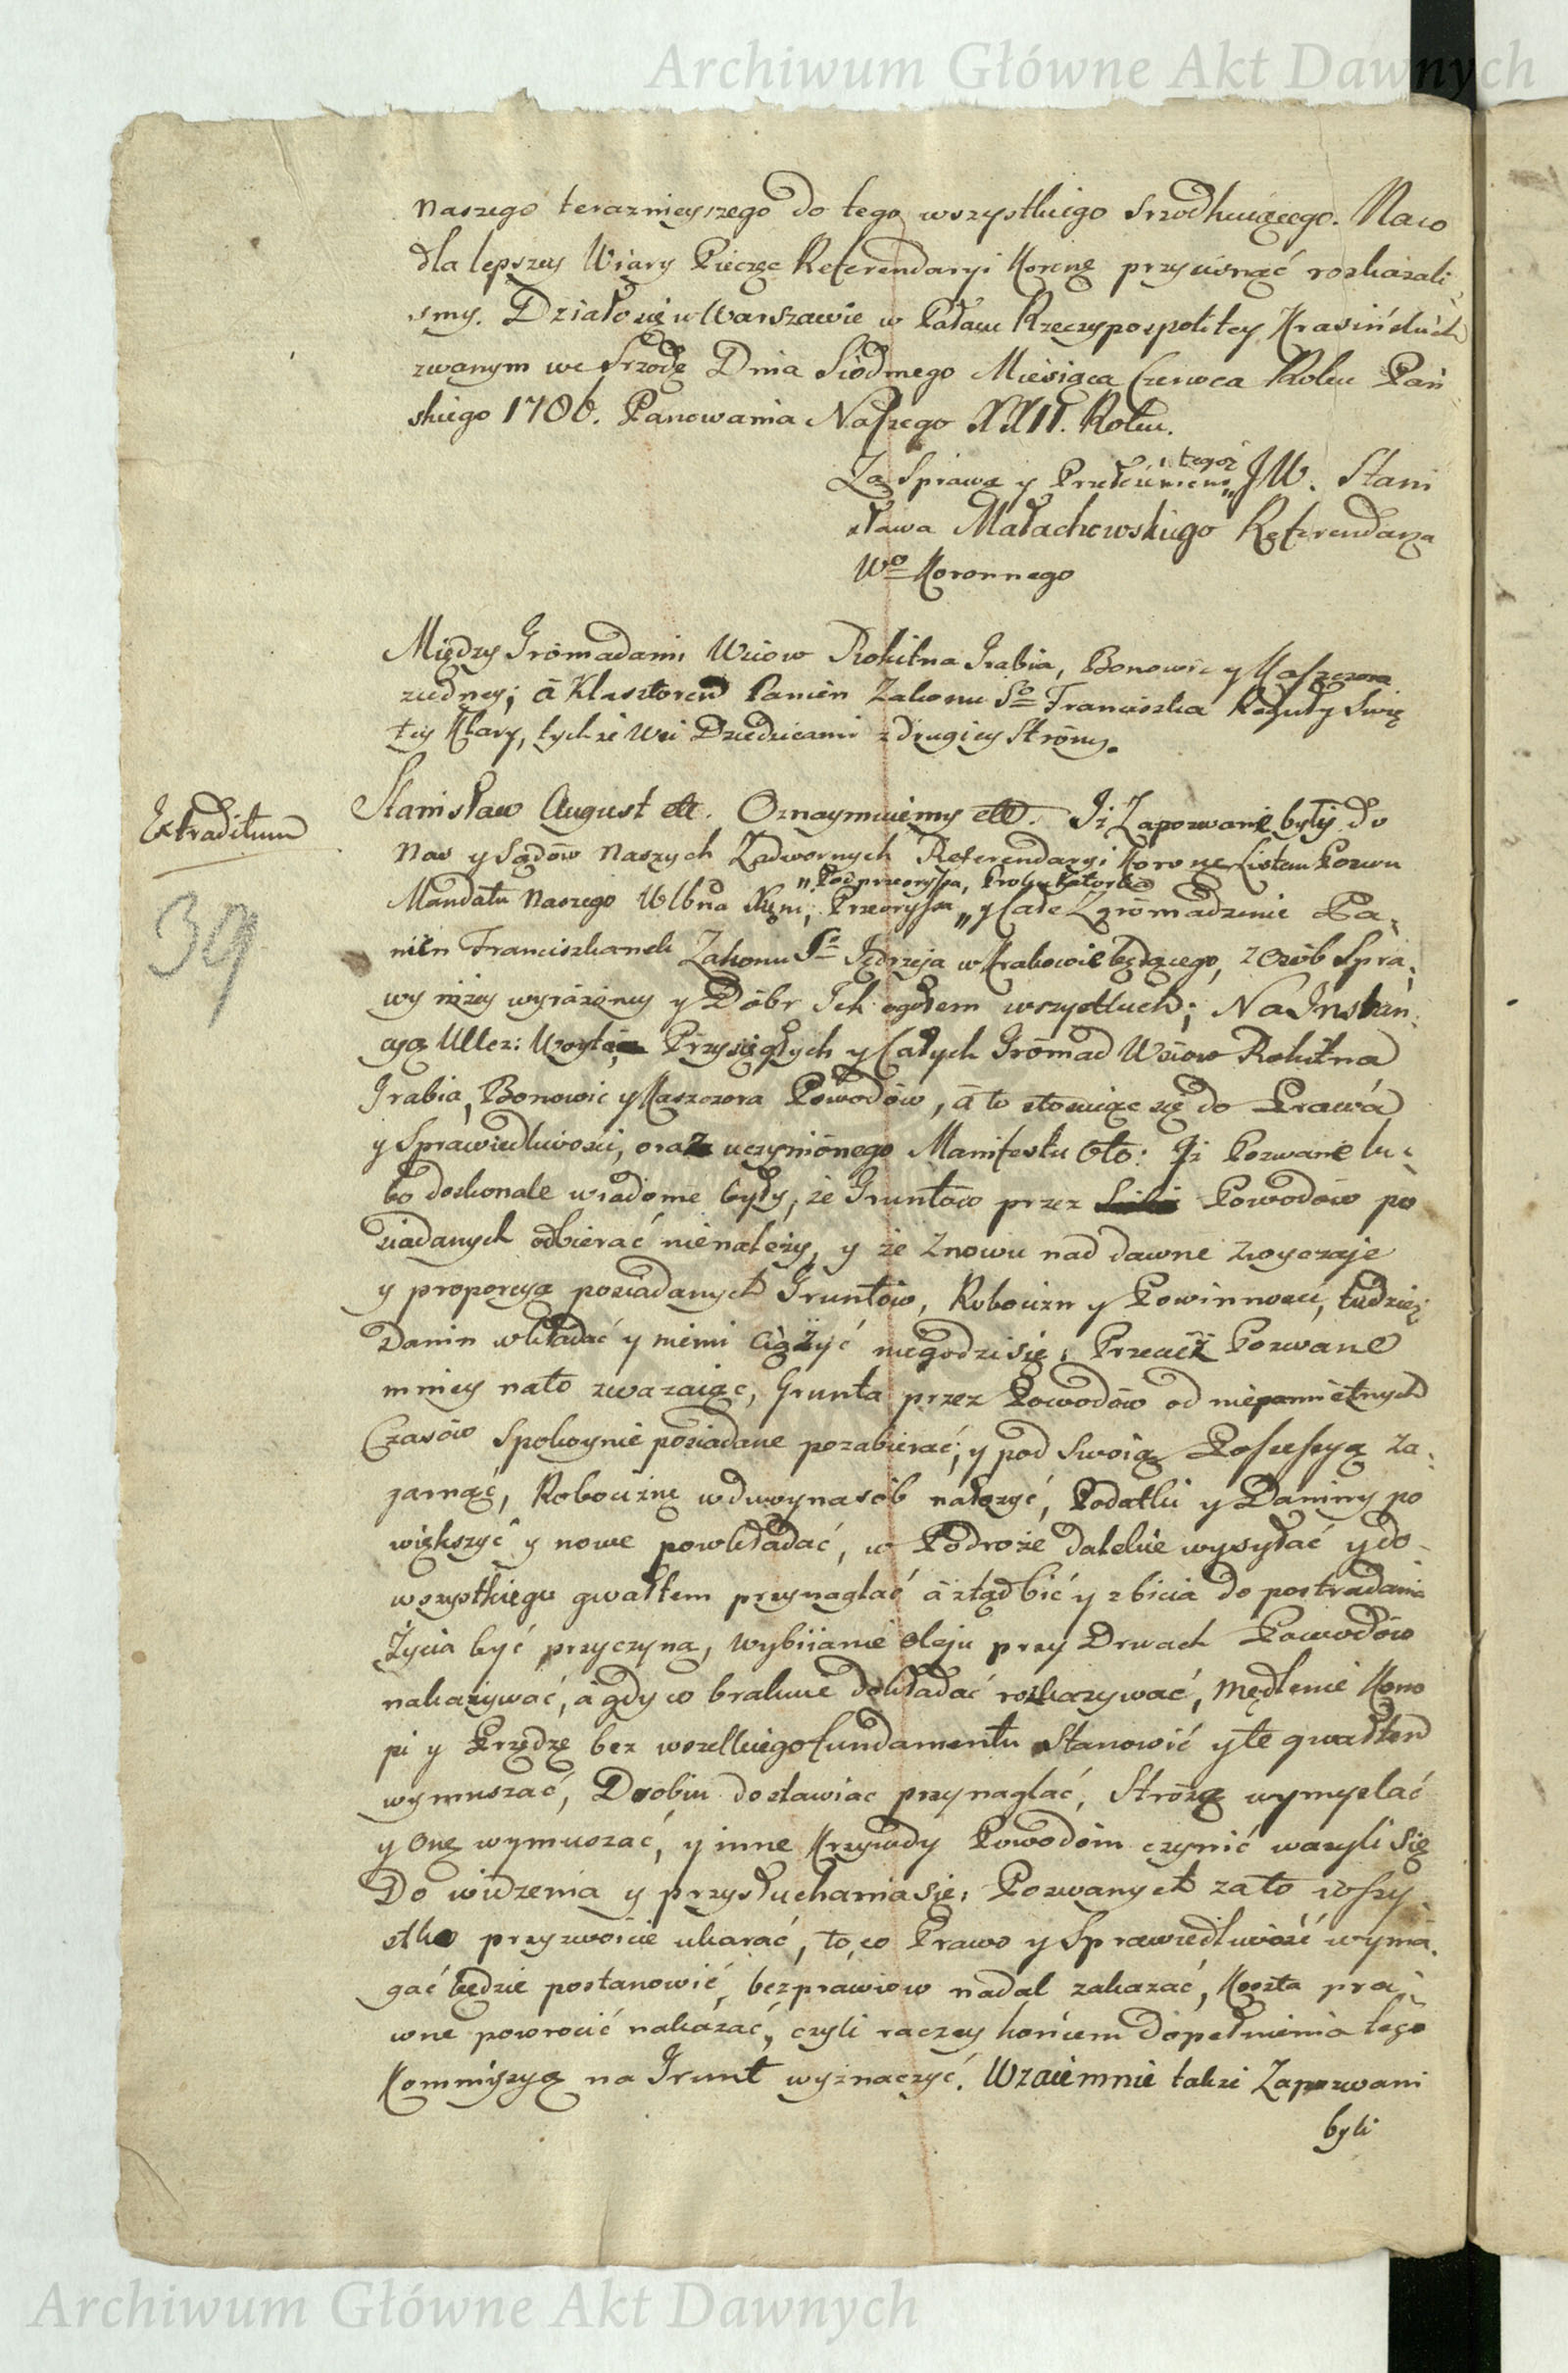 Archiwum Główne Akt Dawnych
naszego teraznieyszego do tego wszystkiego srzodkuiącego. Na co
dla lepszey Wiary Pieczęc Referendaryi Koronę przycisnąć roskazali
smy. Działo się w Warszawie w Pałacu Rzeczypospolitey Krasińskich
zwanym we Srzodę Dnia Siodmego Miesiąca Czerwca Roku Pań
skiego 1786. Panowania Naszego XXII. Roku.
Za Sprawą y Przełożeniem „tegoż" JW. Stani
sława Małachowskiego Referendarza
Wo Koronnego
Między Gromadami Wsiow Rokitna Grabia, Bonowic y Kaszczora
z iedney; á Klasztorem Panien Zakonu So Franciszka Reguły Swię
tey Klary, tychże Wsi Dziedzicami z drugiey Strony.
Extraditum
39
Stanisław August etc. Oznaymuiemy etc. Iż Zapozwane były do
Nas y Sądów Naszych Zadwornych Referendaryi Koronę Listem Pozwu
„Podprzeorysza, Prokuratorka
Mandatu Naszego Wlbna Xięni, Przeorysza „ y Całe Zgromadzenie Pa-
nien Franciszkanek Zakonu So Jędrzeja w Krakowie będącego, z Osób Spra-
wy niżey wyrażoney y Dóbr Ich ogołem wszystkich; Na Instan-
cyą Uczc: Woyta Przysięgłych y Całych Gromad Wsiow Rokitna
Grabia, Bonowic y Kaszczora Powodów, á to stosuiąc się do Prawa
y Sprawiedliwosci, oraz uczynionego Manifestu Oto: Iż Pozwane lu-
bo doskonale wiadome były, że Gruntow przez Powodów po
siadanych odbierać nienależy, y że znowu nad dawne zwyczaje
y proporcyą posiadanych Gruntów, Robocizn y Powinnosci, tudzież
Danin wkładać y niemi ciążyć niegodzi się, Przecież Pozwane
mniey na to zważaiąc, Grunta przez Powodów od niepamiętnych
Czasów Spokoynie posiadane pozabierać, y pod swoią Possessyą za-
garnąć, Robociznę w dwoynasób nałożyć, Podatki y Daniny po
większyć y nowe powkładać, w Podroże dalekie wysyłać y do
wszystkiego gwałtem przynaglać á ztąd bić y z bicia do postradania
Życia być przyczyną, wybiianie Oleju przy Drwach Powodów
nakazywać, á gdy co brakuie dokładać rozkazywać, mędlenie Kono
pi y Przędzę bez wszelkiego fundamentu Stanowić y te gwałtem
wymuszać, Drobiu dostawiac przynaglać, Stróżą wymyslać
y Onę wymuszać, y inne Krzywdy Powodóm czynić ważyli się
Do widzenia y przysłuchania się, Pozwanych za to wszy
stko przyzwoicie ukarać, to, co Prawo y Sprawiedliwość wyma-
gać będzie postanowić, bezprawiow nadal zakazać, Koszta pra-
wne powrocić nakazać, czyli raczey końcem dopełnienia tego
Kommissyą na Grunt wyznaczyć. Wzaiemnie także Zapozwani
byli
Archiwum Główne Akt Dawnych